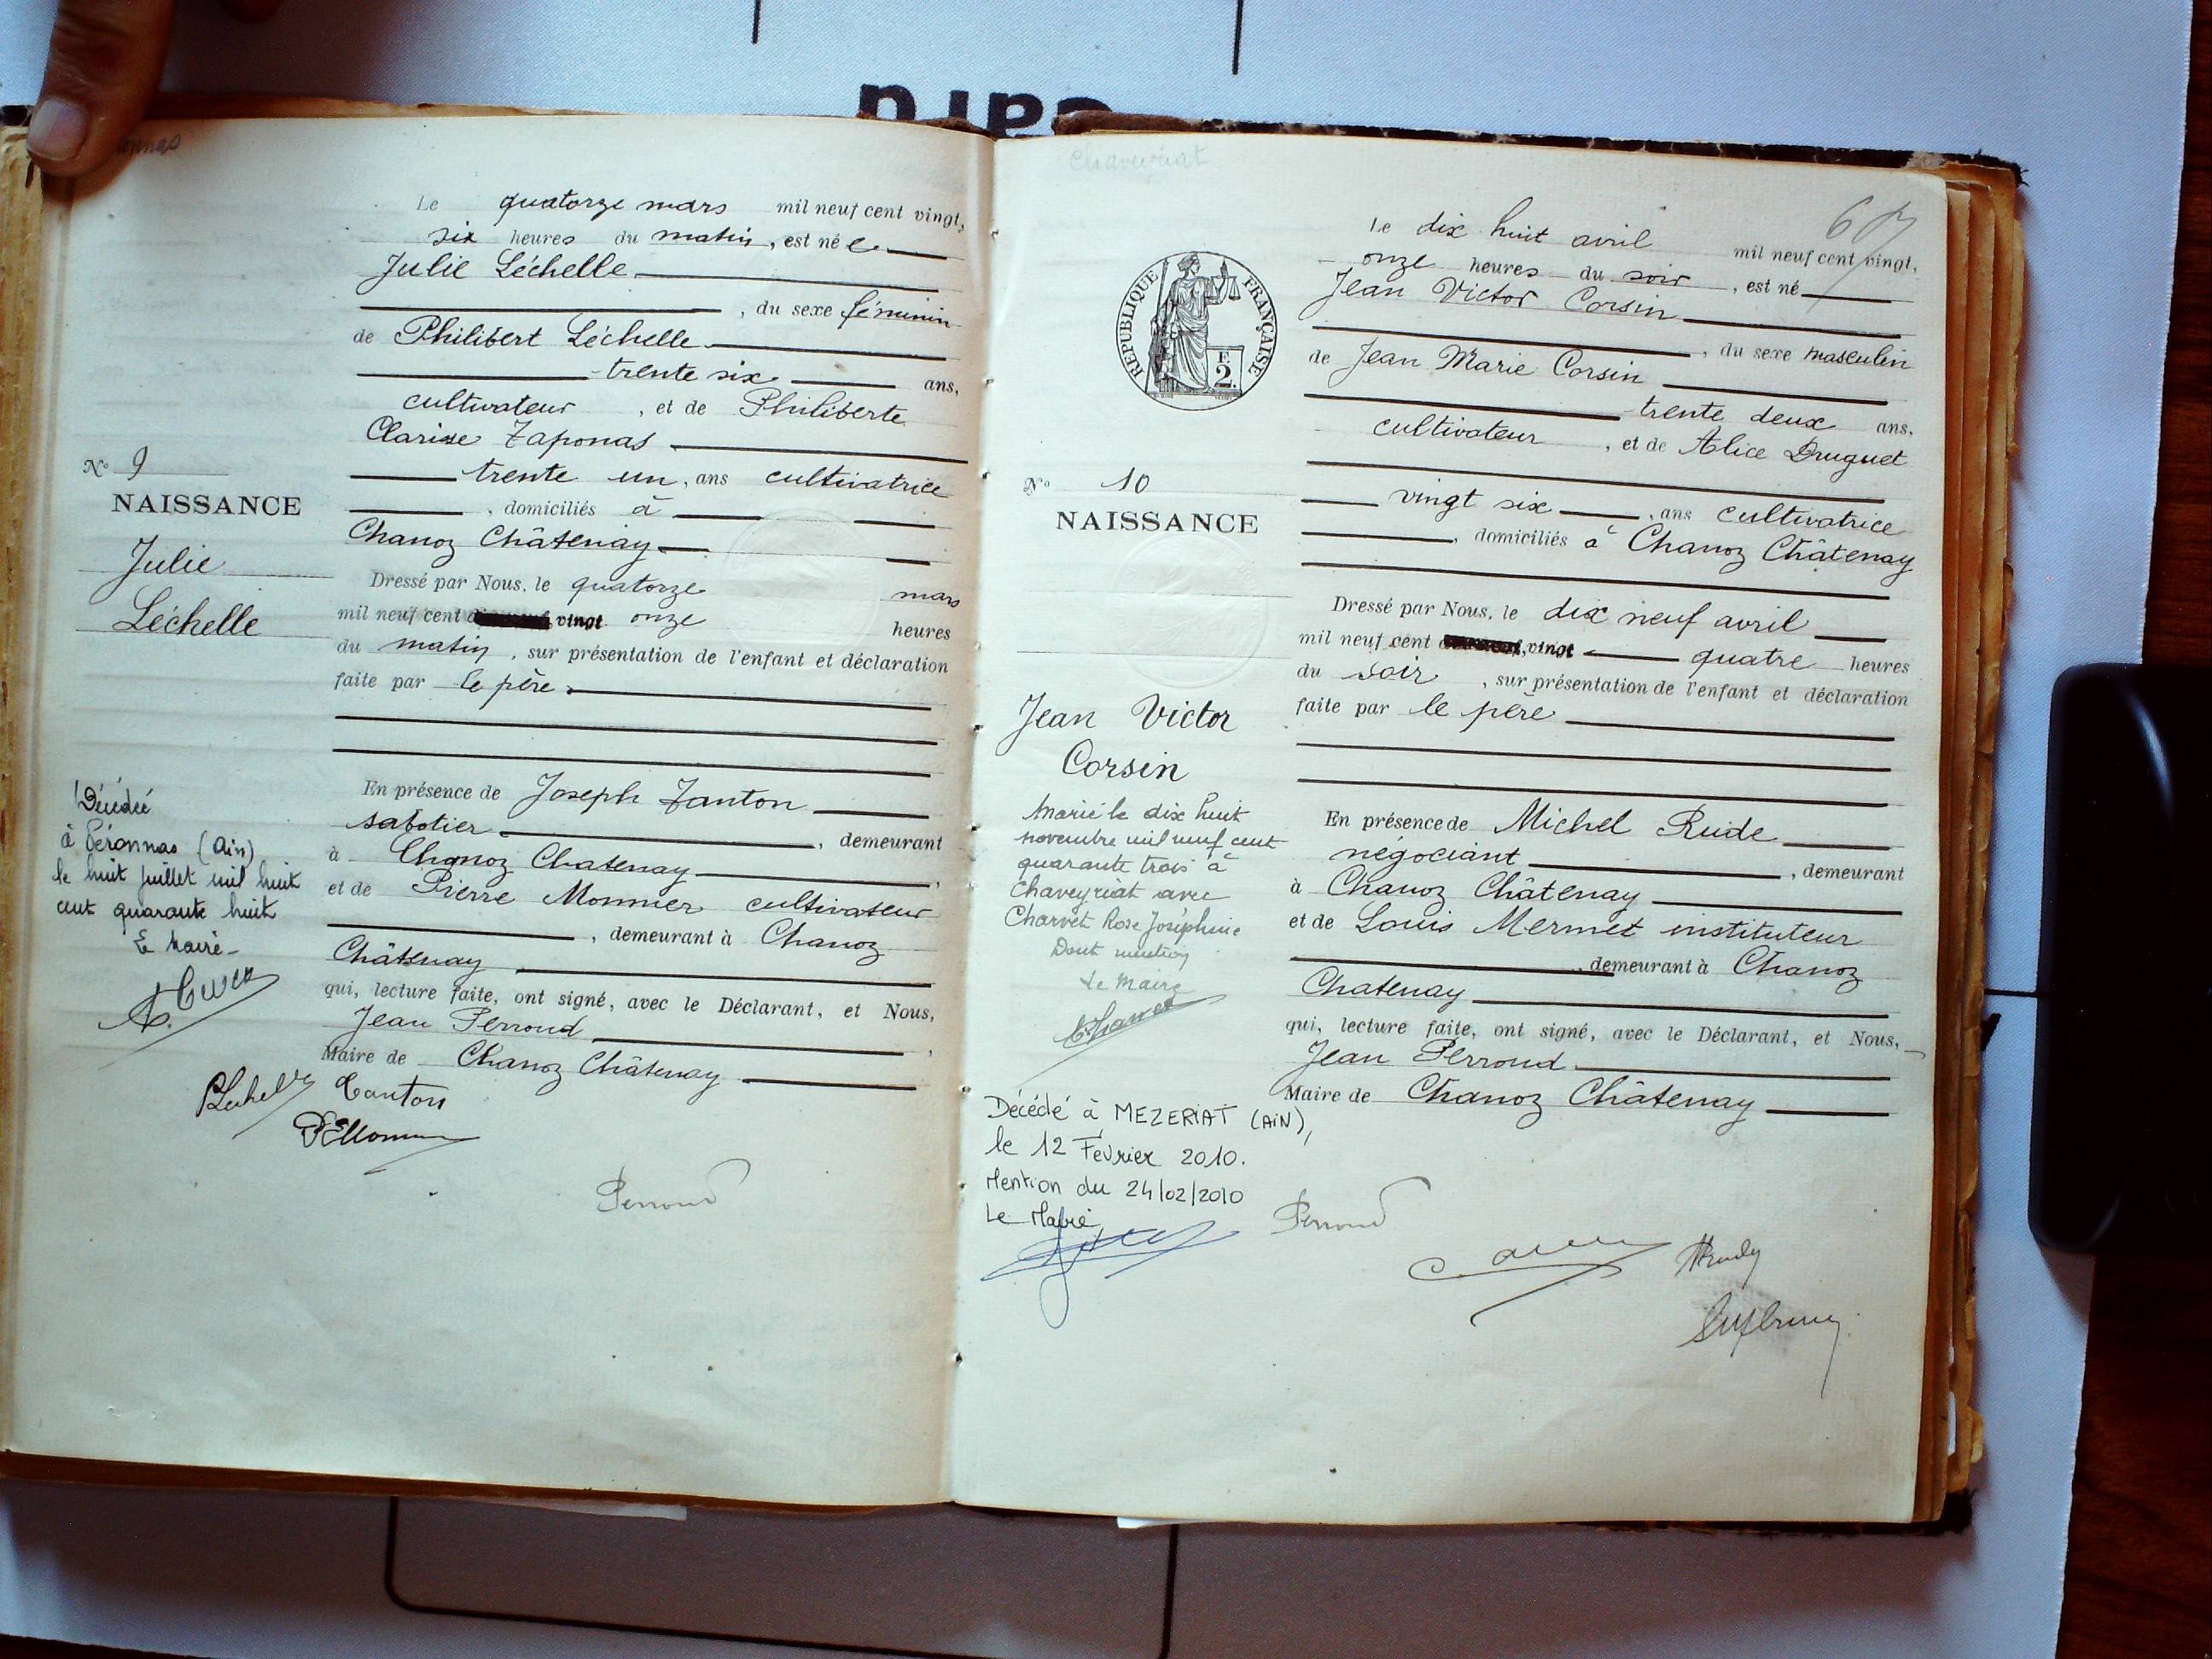 Le quatorze mars mil neuf cent vingt,
six heures du matin, est née
Julie Léchelle
, du sexe féminin
de Philibert Léchelle
trente six ans,
cultivateur, et de Philiberte
Clarisse Zaponas
trente un, ans cultivatrice
, domiciliés à
Chanoz Châtenay
Dressé par Nous, le quatorze mars
mil neuf cent vingt onze heures
du matin, sur présentation de l'enfant et déclaration
faite par le père
En présence de Joseph Tanton
sabotier, demeurant
à Chanoz Chatenay,
et de Pierre Monnier cultivateur
, demeurant à Chanoz
Châtenay
qui, lecture faite, ont signé, avec le Déclarant, et Nous,
Jean Perroud,
Maire de Chanoz Châtenay
Tanton
Perroud
N° 9
NAISSANCE
Julie
Léchelle
Décédée
à Péronnas (Ain)
le huit juillet mil huit
cent quarante huit
Le Maire
Chaveyriat
67
REPUBLIQUE FRANÇAISE
F.
2.
Le dix huit avril mil neuf cent vingt,
onze heures du soir, est né
Jean Victor Corsin
, du sexe masculin
de Jean Marie Corsin
trente deux ans,
cultivateur, et de Alice Druguet
vingt six, ans cultivatrice
, domiciliés à Chanoz Châtenay
Dressé par Nous, le dix neuf avril
mil neuf cent vingt quatre heures
du soir, sur présentation de l'enfant et déclaration
faite par le père
En présence de Michel Rude
négociant, demeurant
à Chanoz Châtenay
et de Louis Mermet instituteur
, demeurant à Chanoz
Chatenay
qui, lecture faite, ont signé, avec le Déclarant, et Nous,
Jean Perroud
Maire de Chanoz Châtenay
Perroud
N° 10
NAISSANCE
Jean Victor
Corsin
Marié le dix huit
novembre mil neuf cent
quarante trois à
Chaveyriat avec
Charvet Rose Joséphine
Dont mention
Le Maire
Décédé à MEZERIAT (AIN),
le 12 Février 2010.
Mention du 24/02/2010
Le Maire,